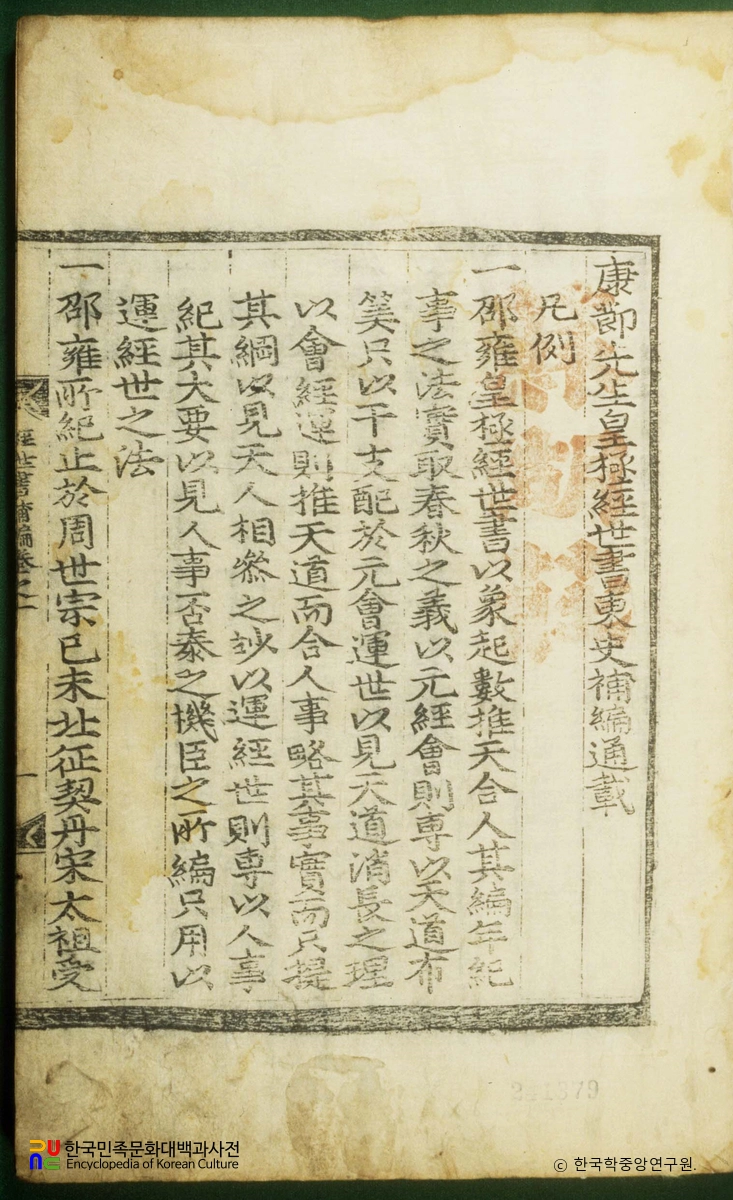 康節先生皇極經世書東史補編通載
凡例
一邵雍皇極經世書以象起數推天合人其編年紀
事之法實取春秋之義以元經會則專以天道布
筭只以干支配於元會運世以見天道消長之理
以會經運則推天道而合人事略其事實而只提
其綱以見天人相叅之妙以運經世則專以人事
紀其大要以見人事否泰之機臣之所編只用以
運經世之法
一邵雍所紀止於周世宗己未北征契丹宋太祖受
經世書補編卷之一
一
241379
한국민족문화대백과사전
Encyclopedia of Korean Culture
© 한국학중앙연구원.